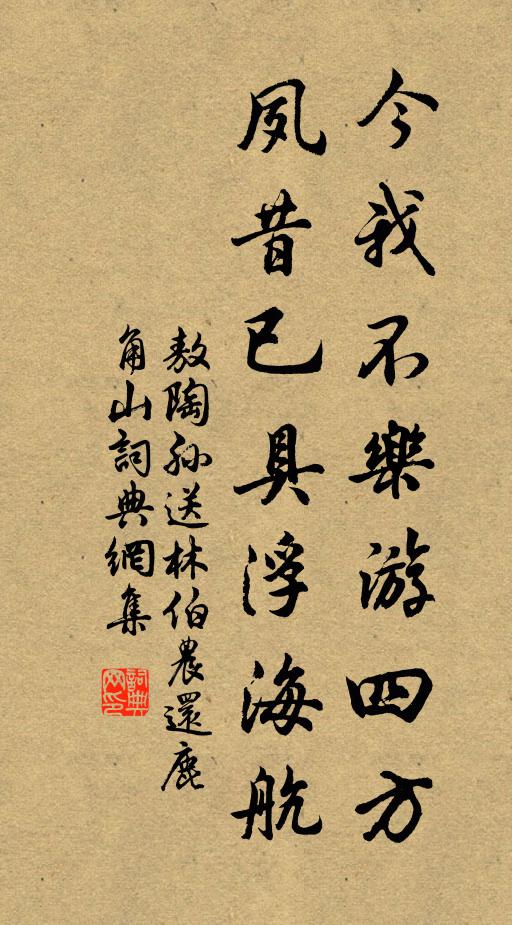 今我不樂游四方
夙昔已具浮海航
敖陶孫送林伯農還鹿
角山詞典網集
詞典网印